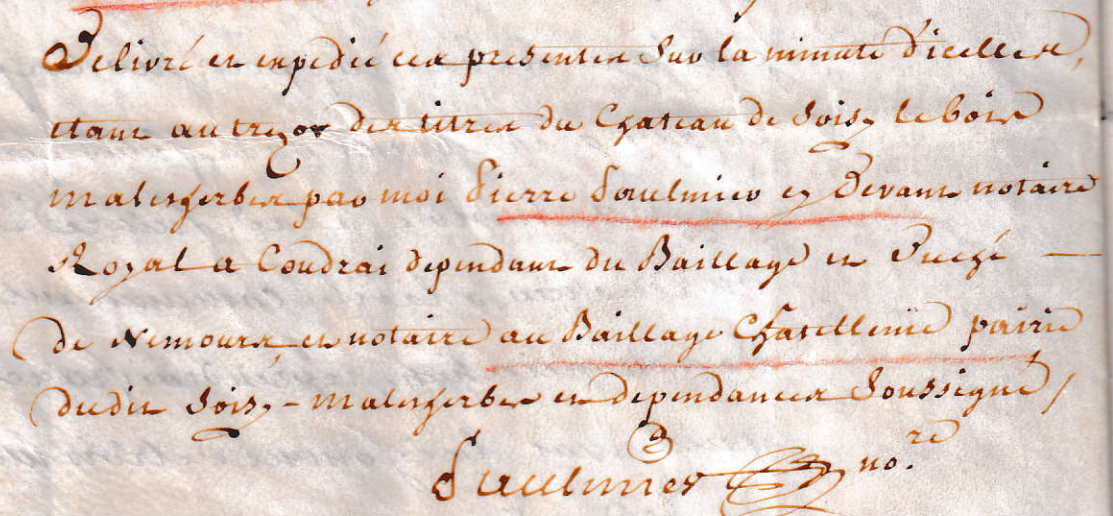 Delivré et expedié ces presentes sur la minute d'icelles,
etant au trezor des titres du Chateau de Soisy le bois
malesherbes par moi Pierre Paulmier cy Devant notaire
Royal a Coudrai dependant du Baillage et Duché
de Nemours, et notaire au Baillage Chatellenie pairie
dudit Soisy - malesherbes et dependances Soussigné /
Paulmier no.re